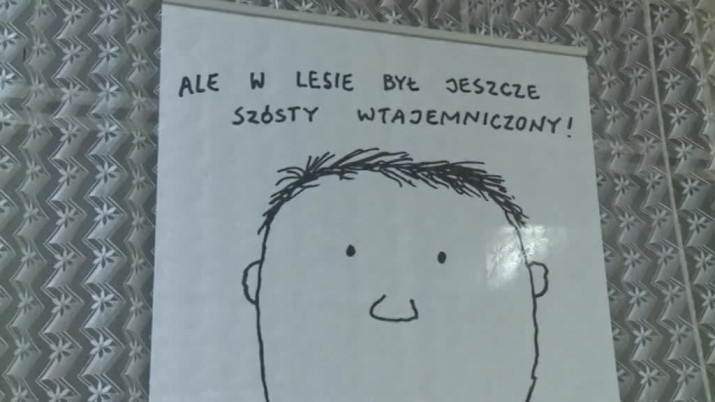 ALE W LESIE BYŁ JESZCZE
SZÓSTY WTAJEMNICZONY!